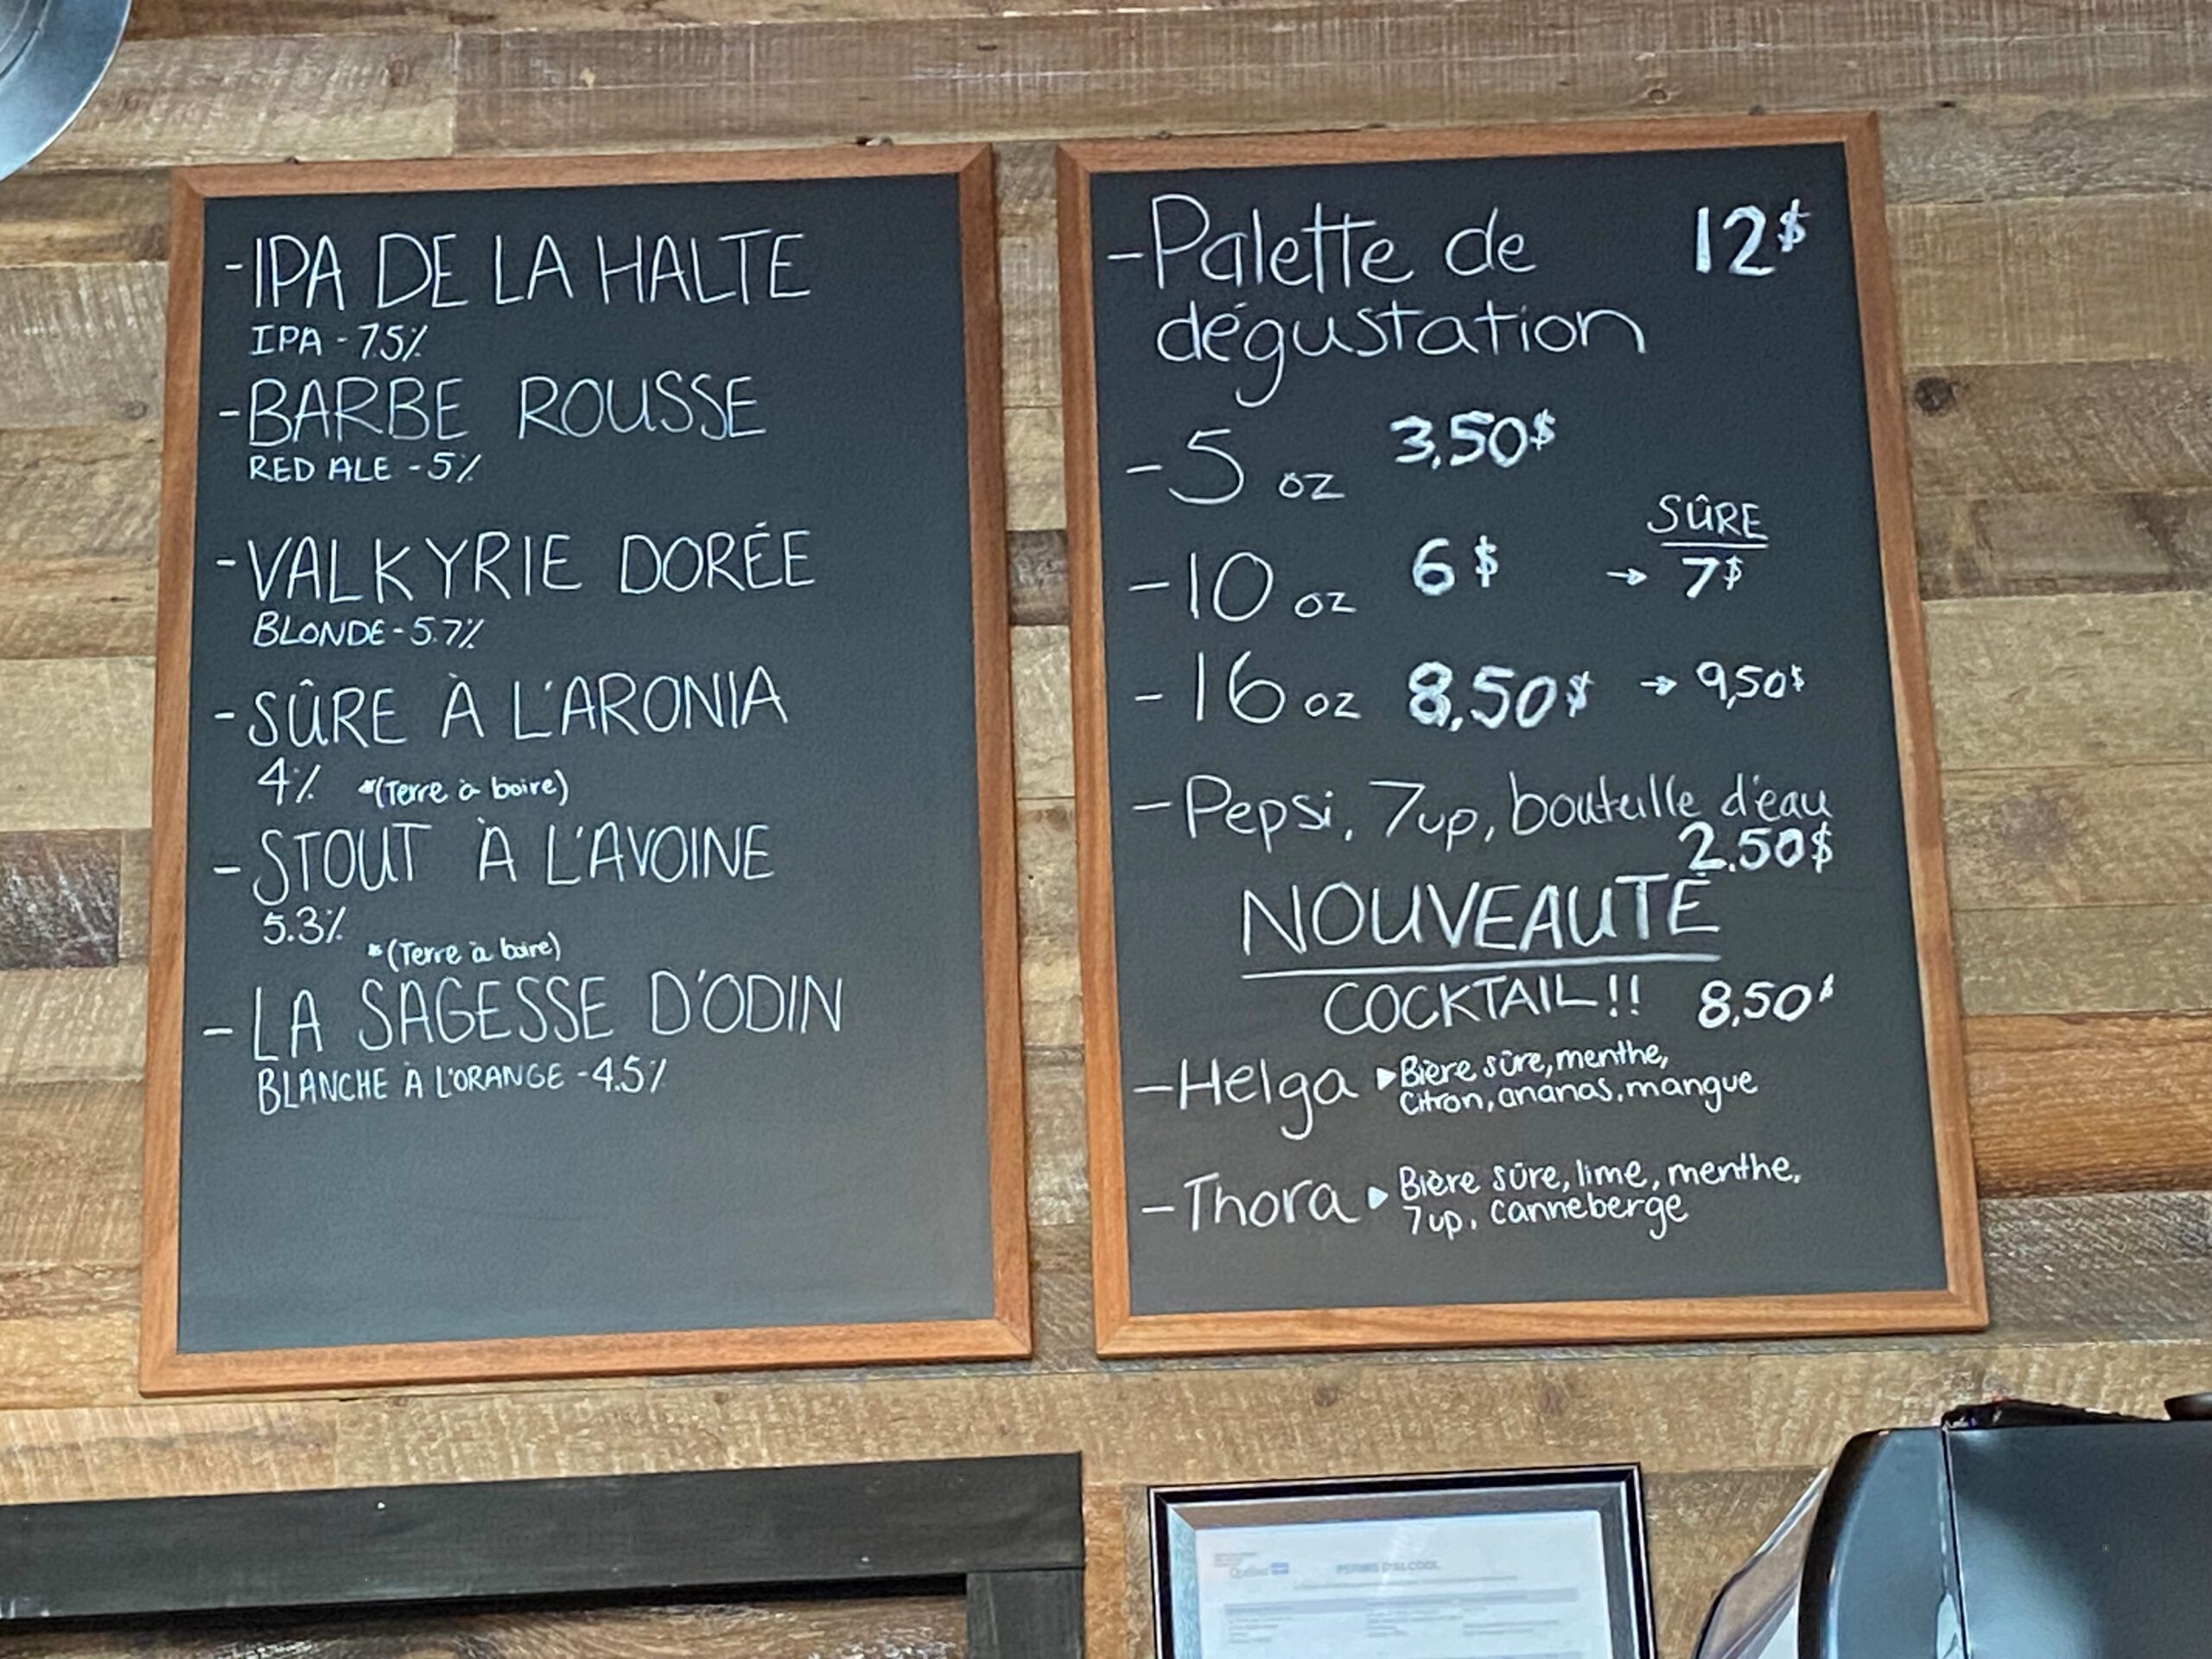 -IPA DE LA HALTE
IPA - 7.5%
-BARBE ROUSSE
RED ALE - 5%
-VALKYRIE DORÉE
BLONDE - 5.7%
-SÛRE À L'ARONIA
4% *(Terre à boire)
-STOUT À L'AVOINE
5.3%
*(Terre à boire)
-LA SAGESSE D'ODIN
BLANCHE À L'ORANGE - 4.5%
-Palette de 12$
dégustation
-5 oz 3,50$
SÛRE
-10 oz 6$ → 7$
-16 oz 8,50$ → 9,50$
-Pepsi, 7up, bouteille d'eau
2.50$
NOUVEAUTÉ
COCKTAIL!! 8,50$
-Helga ▸ Bière sûre, menthe,
citron, ananas, mangue
-Thora ▸ Bière sûre, lime, menthe,
7up, canneberge
Québec
PERMIS D'ALCOOL